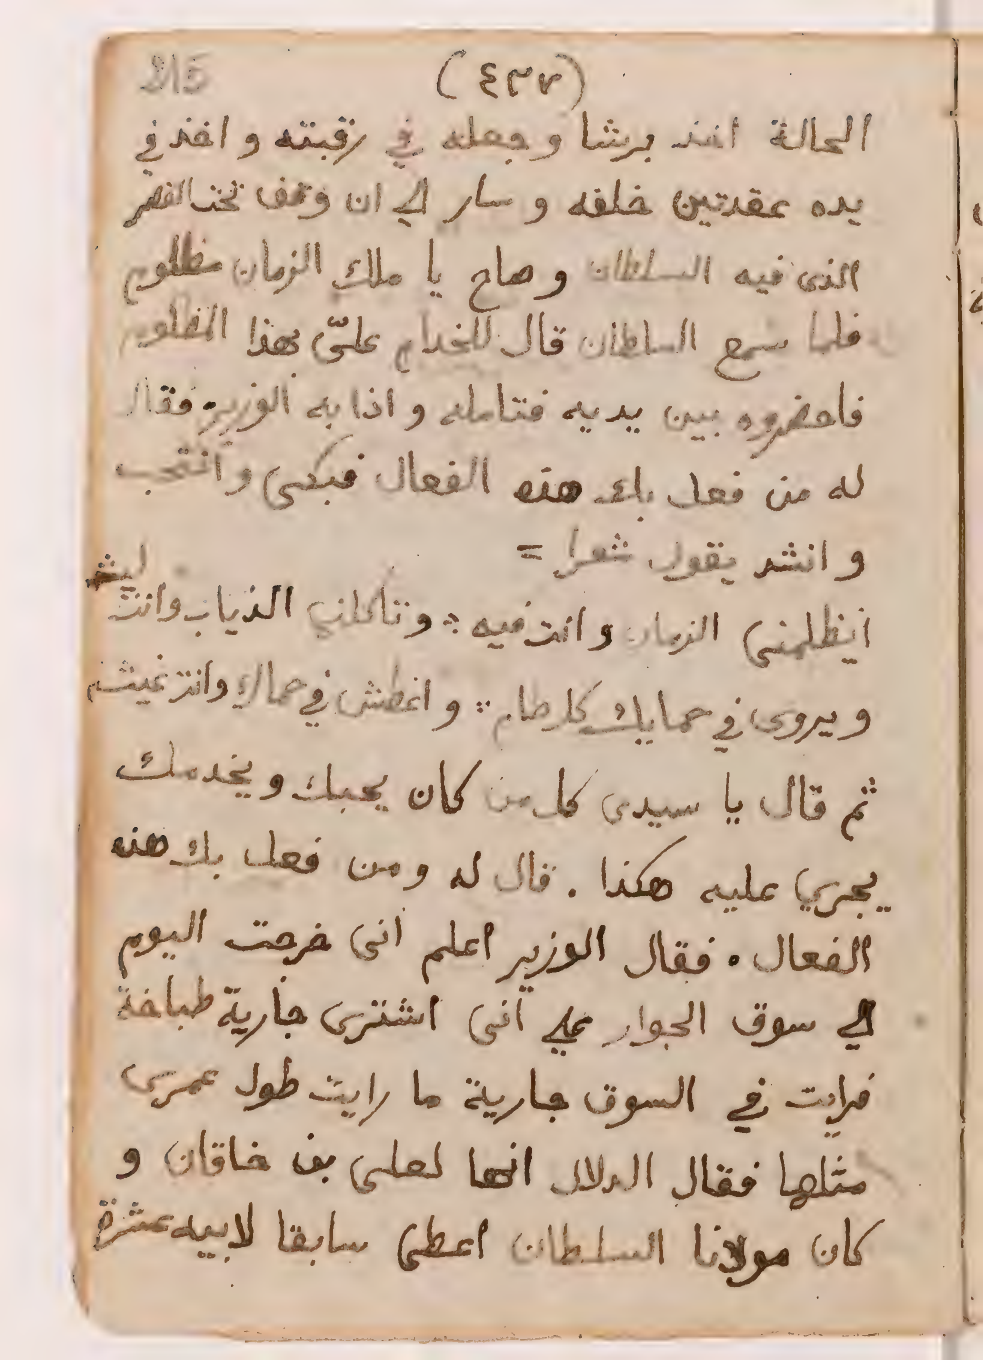 215
(٤٣٧)
الحالة اخذ برشا وجعله في رقبته واخذ في
يده عقدتين خلفه وسار الي ان وقف تحت القصر
الذى فيه السلطان وصاح يا ملك الزمان مظلوم
فلما سمع السلطان قال للخدام علىّ بهذا المظلوم
فاحضروه بين يديه فتامله واذا به الوزير. فقال
له من فعل بك هذه الفعال فبكى وانتحب
وانشد يقول شعرا =
ايظلمنى الزمان وانت فيه ؞ وتاكلني الذياب وانت ليث
ويروى في حمايك كل ظام ؞ واعطش في حماك وانت غيث
ثم قال يا سيدى كل من كان يحبك ويخدمك
يجري عليه هكذا . قال له ومن فعل بك هذه
الفعال . فقال الوزير اعلم انى خرجت اليوم
الي سوق الجوار علي انى اشترى جارية طباخة
فرايت في السوق جارية ما رايت طول عمرى
مثلها فقال الدلال انها لعلى بن خاقان و
كان مولانا السلطان اعطى سابقا لابيه عشرة